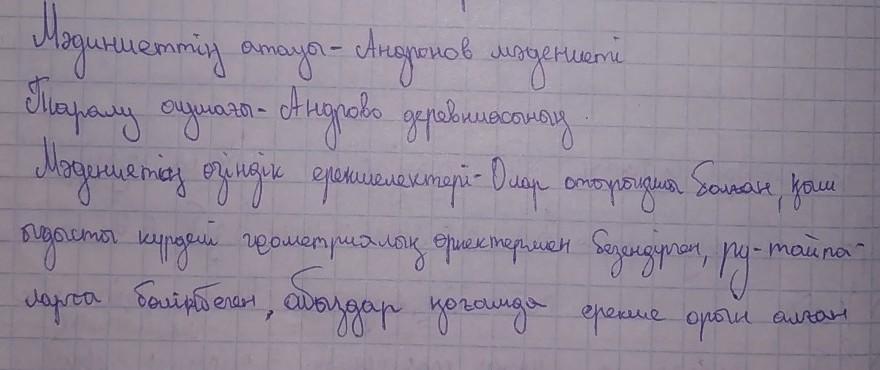 Мәдиниеттің атауы - Андронов мәдениеті
Таралу ошағы - Андрово деревниасының.
Мәдениетің өзіндік ерекшелектері - Олар отырықшы болған, қыш
ыдысты күрделі геометриалық өрнектермен безендірген, ру-тайпа-
ларға бөлінбеген, абыздар қоғамда ерекше орын алған